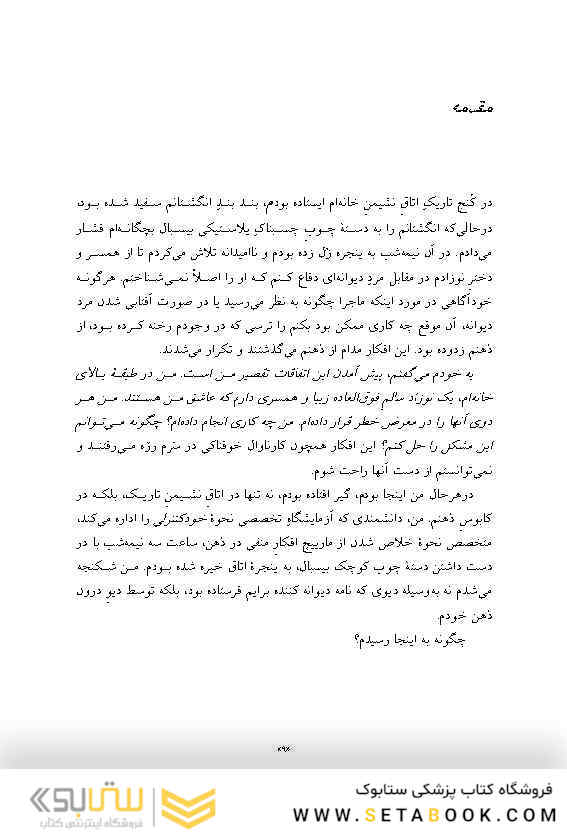 مقدمه
در کُنج تاریکِ اتاقِ نشیمنِ خانه‌ام ایستاده بودم، بند بندِ انگشتانم سفید شده بود،
درحالی‌که انگشتانم را به دستهٔ چوبِ چسبناکِ پلاستیکی بیسبال بچگانه‌ام فشار
می‌دادم. در آن نیمه‌شب به پنجره زُل زده بودم و ناامیدانه تلاش می‌کردم تا از همسر و
دخترِ نوزادم در مقابل مردِ دیوانه‌ای دفاع کنم که او را اصلاً نمی‌شناختم. هرگونه
خودآگاهی در مورد اینکه ماجرا چگونه به نظر می‌رسید یا در صورت آفتابی شدن مرد
دیوانه، آن موقع چه کاری ممکن بود بکنم را ترسی که در وجودم رخنه کرده بود، از
ذهنم زدوده بود. این افکار مدام از ذهنم می‌گذشتند و تکرار می‌شدند.
به خودم می‌گفتم، پیش آمدن این اتفاقات تقصیر من است. من در طبقهٔ بالای
خانه‌ام، یک نوزاد سالمِ فوق‌العاده زیبا و همسری دارم که عاشق من هستند. من هر
دوی آنها را در معرض خطر قرار داده‌ام. من چه کاری انجام داده‌ام؟ چگونه می‌توانم
این مشکل را حل کنم؟ این افکار همچون کارناوال خوفناکی در سرم رژه می‌رفتند و
نمی‌توانستم از دست آنها راحت شوم.
درهرحال من اینجا بودم، گیر افتاده بودم، نه تنها در اتاقِ نشیمنِ تاریک، بلکه در
کابوسِ ذهنم. من، دانشمندی که آزمایشگاهِ تخصصیِ نحوهٔ خودکنترلی را اداره می‌کند،
متخصصِ نحوهٔ خلاص شدن از مارپیچِ افکارِ منفی در ذهن، ساعت سه نیمه‌شب با در
دست داشتن دستهٔ چوب کوچک بیسبال، به پنجرهٔ اتاق خیره شده بودم. من شکنجه
می‌شدم نه به‌وسیله دیوی که نامه دیوانه کننده برایم فرستاده بود، بلکه توسط دیوِ درون
ذهن خودم.
چگونه به اینجا رسیدم؟
فروشگاه کتاب پزشکی ستابوک
ستابوک
فروشگاه اینترنتی کتاب
WWW.SETABOOK.COM